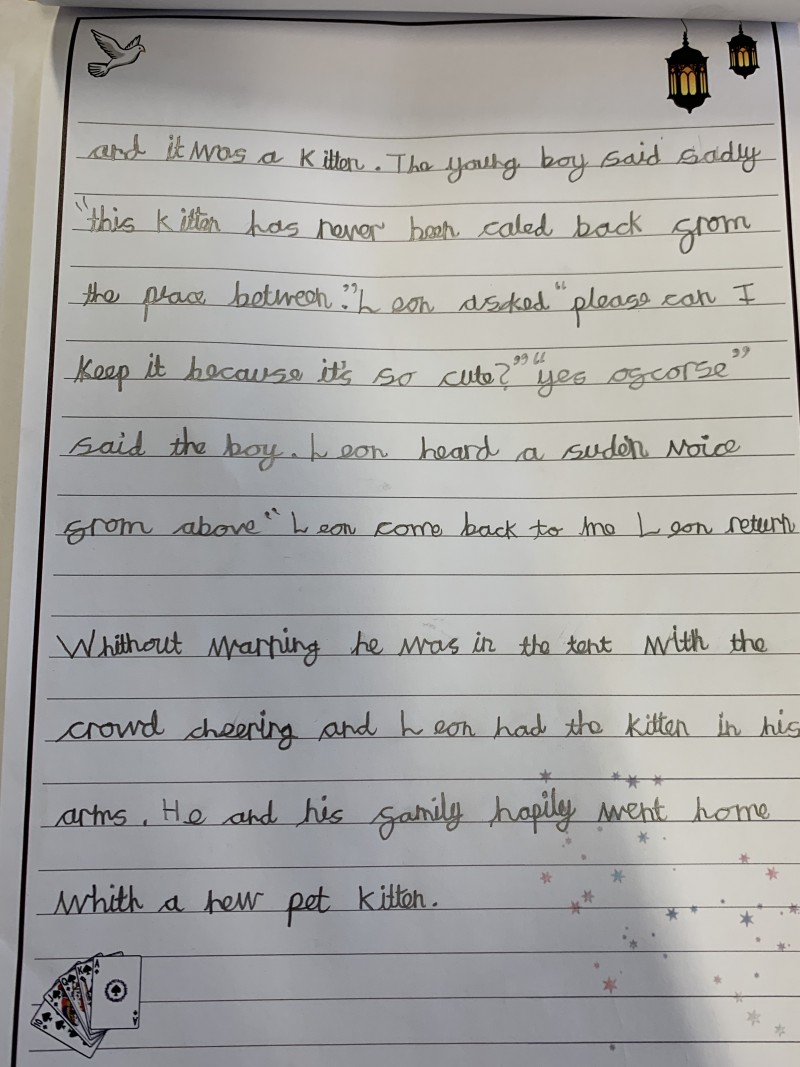 and it was a kitten. The young boy said sadly
"this kitten has never been caled back from
the place between." Leon asked "please can I
Keep it because it's so cute?" "yes ofcorse"
said the boy. Leon heard a suden Noice
from above "Leon come back to me Leon return
Whithout warning he was in the tent with the
crowd cheering and Leon had the kitten in his
arms. He and his family hapily went home
whith a new pet kitten.